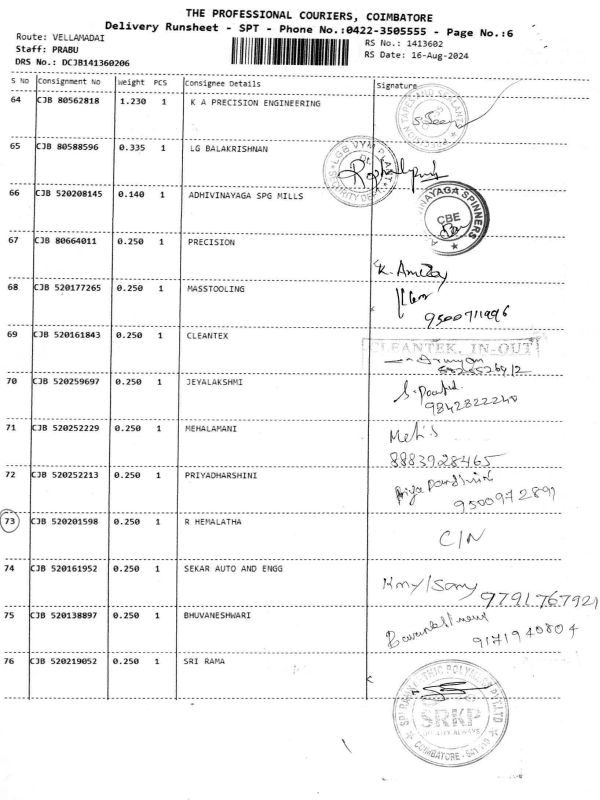 THE PROFESSIONAL COURIERS, COIMBATORE
Delivery Runsheet - SPT - Phone No.:0422-3505555 - Page No.:6
Route: VELLAMADAI
RS No.: 1413602
Staff: PRABU
RS Date: 16-Aug-2024
DRS No.: DCJB141360206
S No Consignment No Weight PCS Consignee Details Signature
64 CJB 80562818 1.230 1 K A PRECISION ENGINEERING
65 CJB 80588596 0.335 1 LG BALAKRISHNAN
66 CJB 520208145 0.140 1 ADHIVINAYAGA SPG MILLS
CBE
67 CJB 80664011 0.250 1 PRECISION
68 CJB 520177265 0.250 1 MASSTOOLING
9500711996
69 CJB 520161843 0.250 1 CLEANTEX
CLEANTEK, IN-OUT
70 CJB 520259697 0.250 1 JEYALAKSHMI
9842822240
71 CJB 520252229 0.250 1 MEHALAMANI
8883928465
72 CJB 520252213 0.250 1 PRIYADHARSHINI
9500972891
73 CJB 520201598 0.250 1 R HEMALATHA
C/N
74 CJB 520161952 0.250 1 SEKAR AUTO AND ENGG
9791767921
75 CJB 520138897 0.250 1 BHUVANESHWARI
9171940804
76 CJB 520219052 0.250 1 SRI RAMA
SRKP